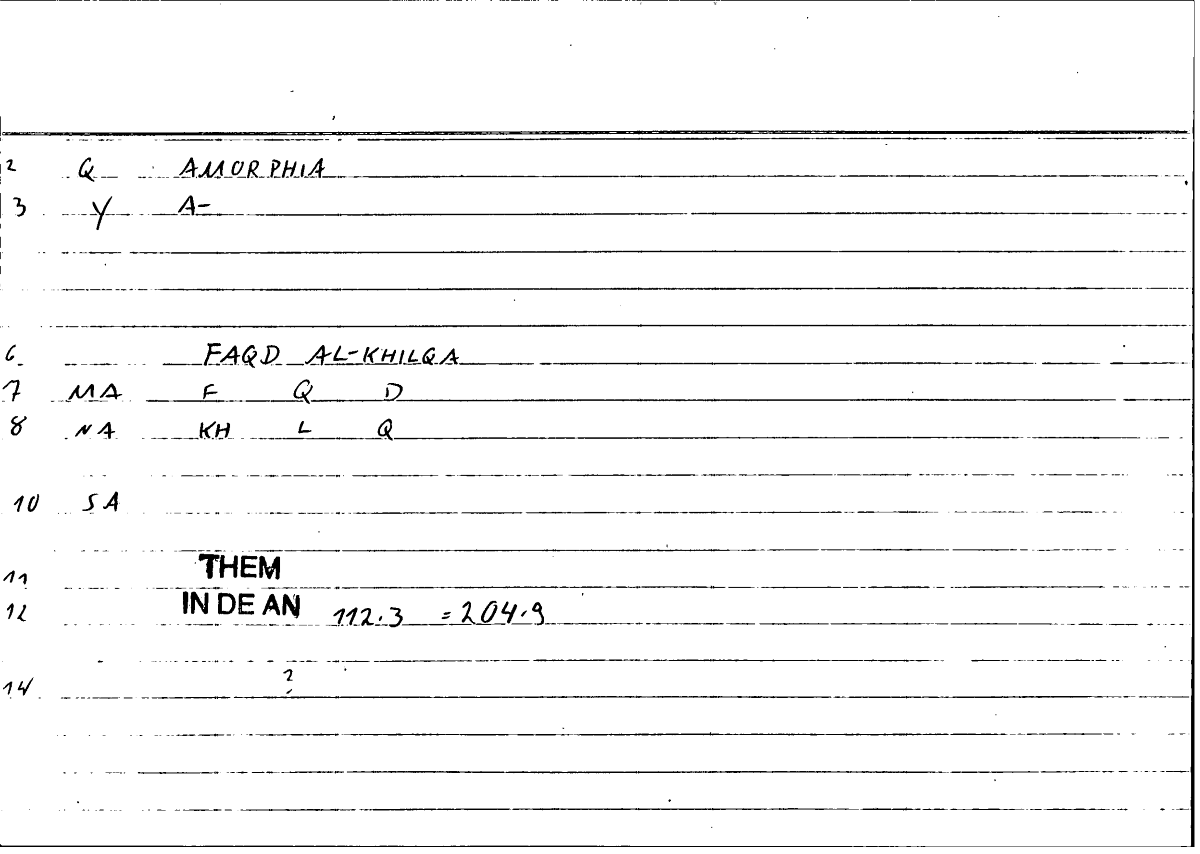 2 Q AMORPHIA
3 Y A-
6 FAQD AL-KHILQA
7 MA F Q D
8 NA KH L Q
10 SA
11 THEM
12 IN DE AN 112.3 =204.9
14 ?